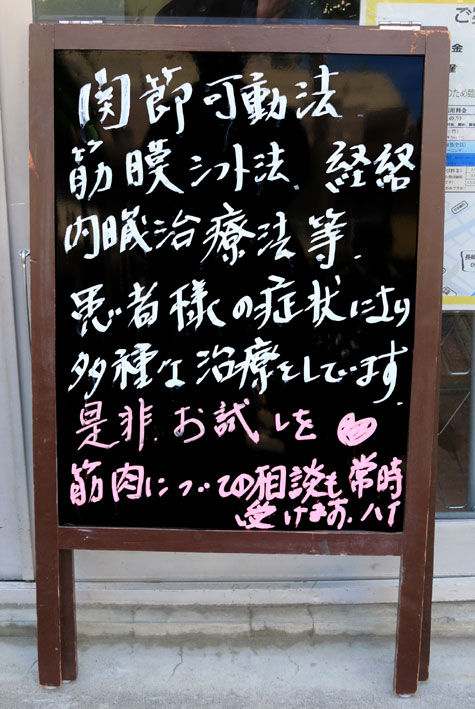 関節可動法
筋膜シフト法、経絡
内臓治療法等、
患者様の症状により
多種な治療をしています。
是非、お試しを
筋肉についての相談も常時
受けます。ハイ
ご
金